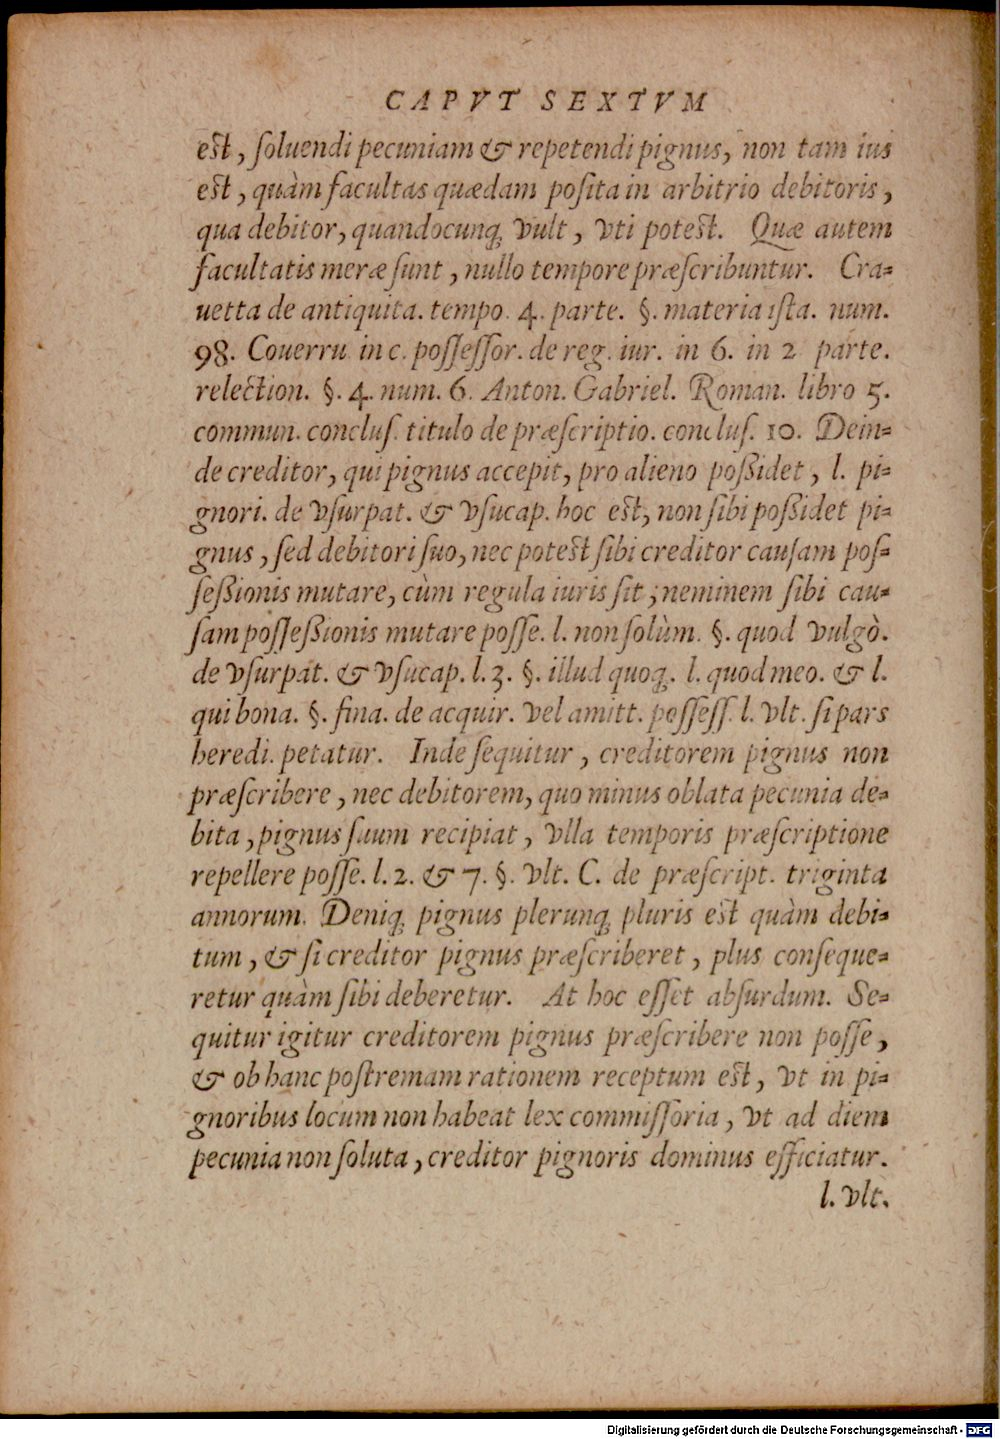 CAPVT SEXTVM
est, ſoluendi pecuniam & repetendi pignus, non tam ius
est, quàm facultas quædam poſita in arbitrio debitoris,
qua debitor, quandocunq; vult, vti potest. Quæ autem
facultatis meræ ſunt, nullo tempore præſcribuntur. Cra-
uetta de antiquita. tempo. 4. parte. §. materia iſta. num.
98. Couerru in c. poſſeſſor. de reg. iur. in 6. in 2 parte.
relection. §. 4. num. 6. Anton. Gabriel. Roman. libro 5.
commun. concluſ. titulo de præſcriptio. concluſ. 10. Dein-
de creditor, qui pignus accepit, pro alieno poßidet, l. pi-
gnori. de vſurpat. & vſucap. hoc est, non ſibi poßidet pi-
gnus, ſed debitori ſuo, nec potest ſibi creditor cauſam poſ-
ſeßionis mutare, cùm regula iuris ſit, neminem ſibi cau-
ſam poſſeßionis mutare poſſe. l. non ſolùm. §. quod vulgò.
de vſurpat. & vſucap. l. 3. §. illud quoq;. l. quod meo. & l.
qui bona. §. fina. de acquir. vel amitt. poſſeſſ. l. vlt. ſi pars
heredi. petatur. Inde ſequitur, creditorem pignus non
præſcribere, nec debitorem, quo minus oblata pecunia de-
bita, pignus ſuum recipiat, vlla temporis præſcriptione
repellere poſſe. l. 2. & 7. §. vlt. C. de præſcript. triginta
annorum. Deniq; pignus plerunq; pluris est quàm debi-
tum, & ſi creditor pignus præſcriberet, plus conſeque-
retur quàm ſibi deberetur. At hoc eſſet abſurdum. Se-
quitur igitur creditorem pignus præſcribere non poſſe,
& ob hanc poſtremam rationem receptum est, vt in pi-
gnoribus locum non habeat lex commiſſoria, vt ad diem
pecunia non ſoluta, creditor pignoris dominus efficiatur.
l. vlt.
Digitalisierung gefördert durch die Deutsche Forschungsgemeinschaft - DFG